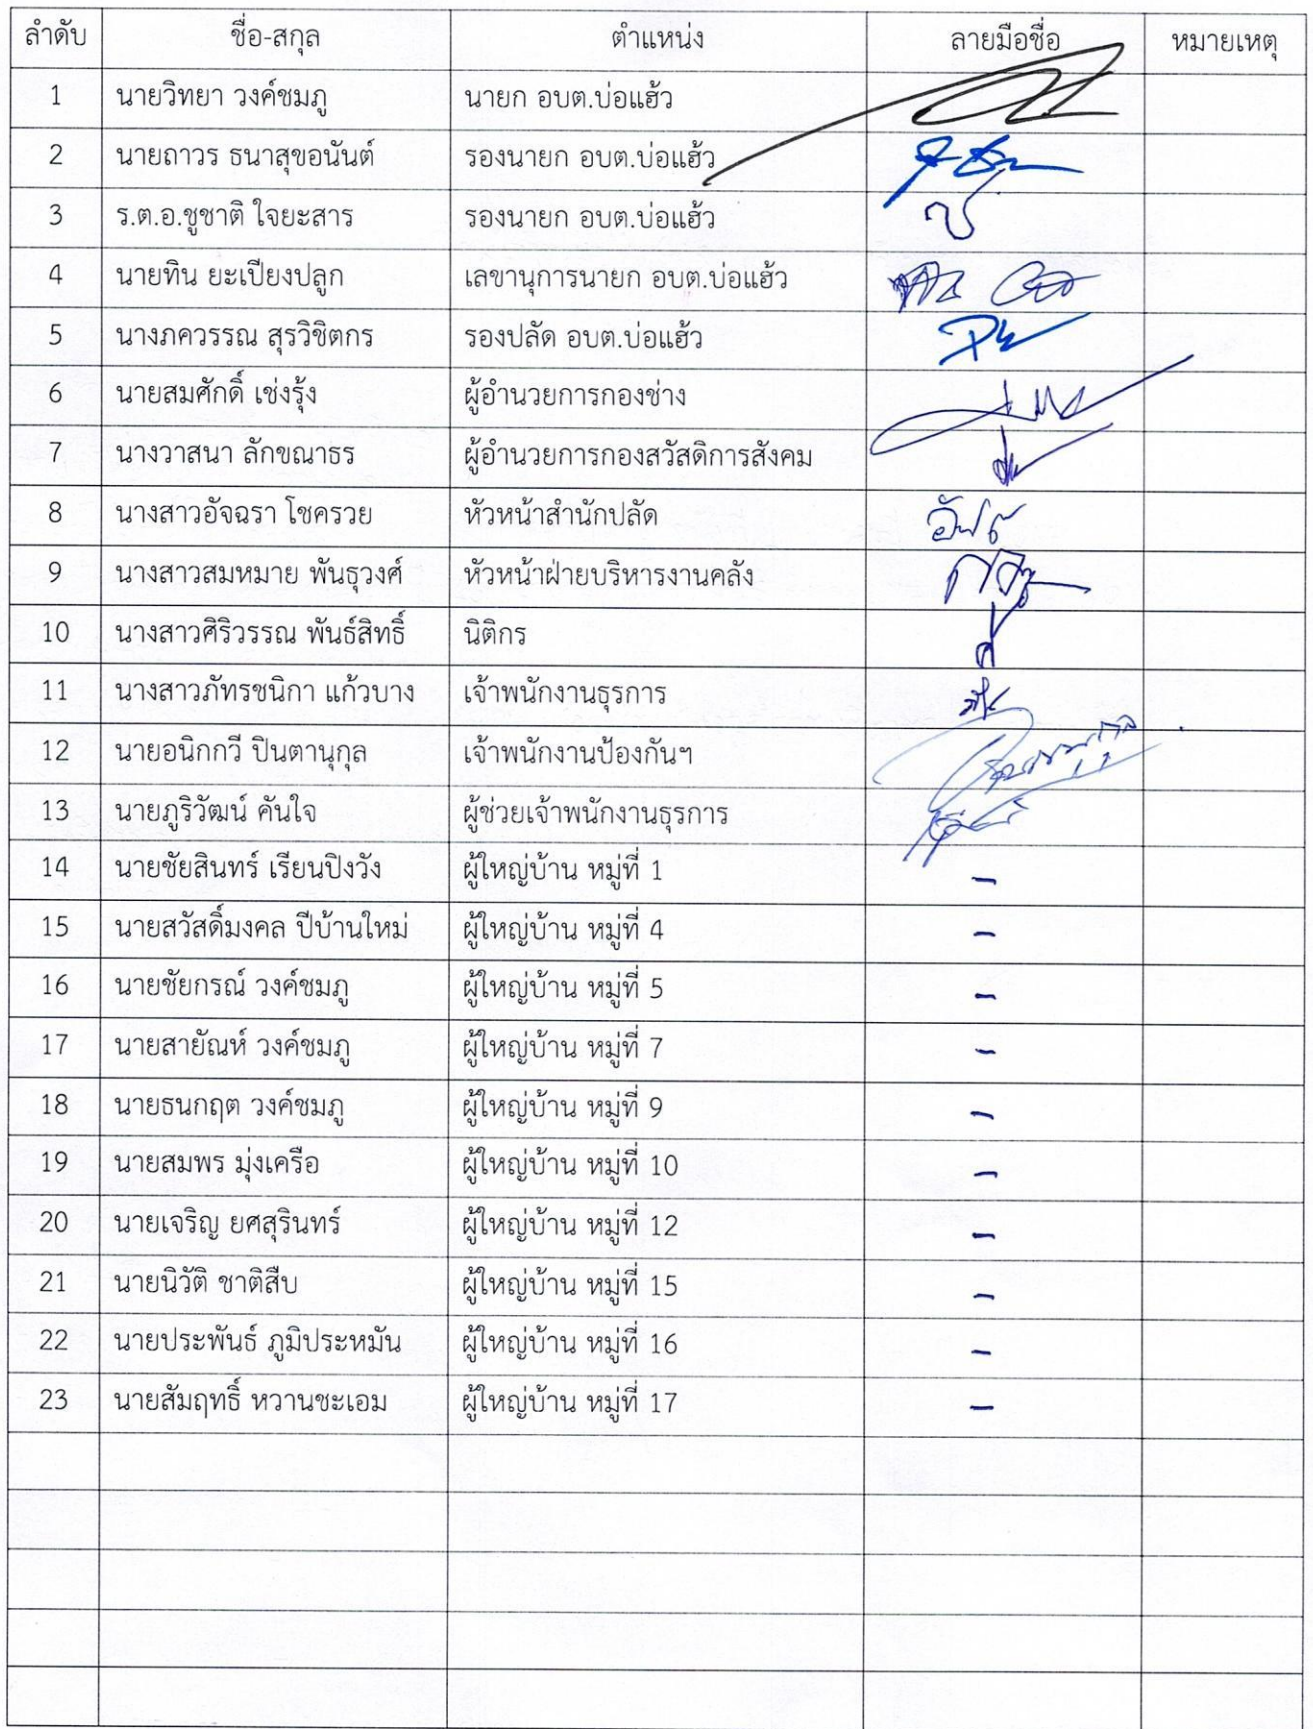 ลำดับ ชื่อ-สกุล ตำแหน่ง ลายมือชื่อ หมายเหตุ
1 นายวิทยา วงค์ชมภู นายก อบต.บ่อแฮ้ว
2 นายถาวร ธนาสุขอนันต์ รองนายก อบต.บ่อแฮ้ว
3 ร.ต.อ.ชูชาติ ใจยะสาร รองนายก อบต.บ่อแฮ้ว
4 นายทิน ยะเปียงปลูก เลขานุการนายก อบต.บ่อแฮ้ว
5 นางภควรรณ สุรวิชิตกร รองปลัด อบต.บ่อแฮ้ว
6 นายสมศักดิ์ เช่งรุ้ง ผู้อำนวยการกองช่าง
7 นางวาสนา ลักขณาธร ผู้อำนวยการกองสวัสดิการสังคม
8 นางสาวอัจฉรา โชครวย หัวหน้าสำนักปลัด
9 นางสาวสมหมาย พันธุวงศ์ หัวหน้าฝ่ายบริหารงานคลัง
10 นางสาวศิริวรรณ พันธ์สิทธิ์ นิติกร
11 นางสาวภัทรชนิกา แก้วบาง เจ้าพนักงานธุรการ
12 นายอนิกกวี ปินตานุกุล เจ้าพนักงานป้องกันฯ
13 นายภูริวัฒน์ คันใจ ผู้ช่วยเจ้าพนักงานธุรการ
14 นายชัยสินทร์ เรียนปิงวัง ผู้ใหญ่บ้าน หมู่ที่ 1 -
15 นายสวัสดิ์มงคล ปีบ้านใหม่ ผู้ใหญ่บ้าน หมู่ที่ 4 -
16 นายชัยกรณ์ วงค์ชมภู ผู้ใหญ่บ้าน หมู่ที่ 5 -
17 นายสายัณห์ วงค์ชมภู ผู้ใหญ่บ้าน หมู่ที่ 7 -
18 นายธนกฤต วงค์ชมภู ผู้ใหญ่บ้าน หมู่ที่ 9 -
19 นายสมพร มุ่งเครือ ผู้ใหญ่บ้าน หมู่ที่ 10 -
20 นายเจริญ ยศสุรินทร์ ผู้ใหญ่บ้าน หมู่ที่ 12 -
21 นายนิวัติ ชาติสืบ ผู้ใหญ่บ้าน หมู่ที่ 15 -
22 นายประพันธ์ ภูมิประหมัน ผู้ใหญ่บ้าน หมู่ที่ 16 -
23 นายสัมฤทธิ์ หวานชะเอม ผู้ใหญ่บ้าน หมู่ที่ 17 -